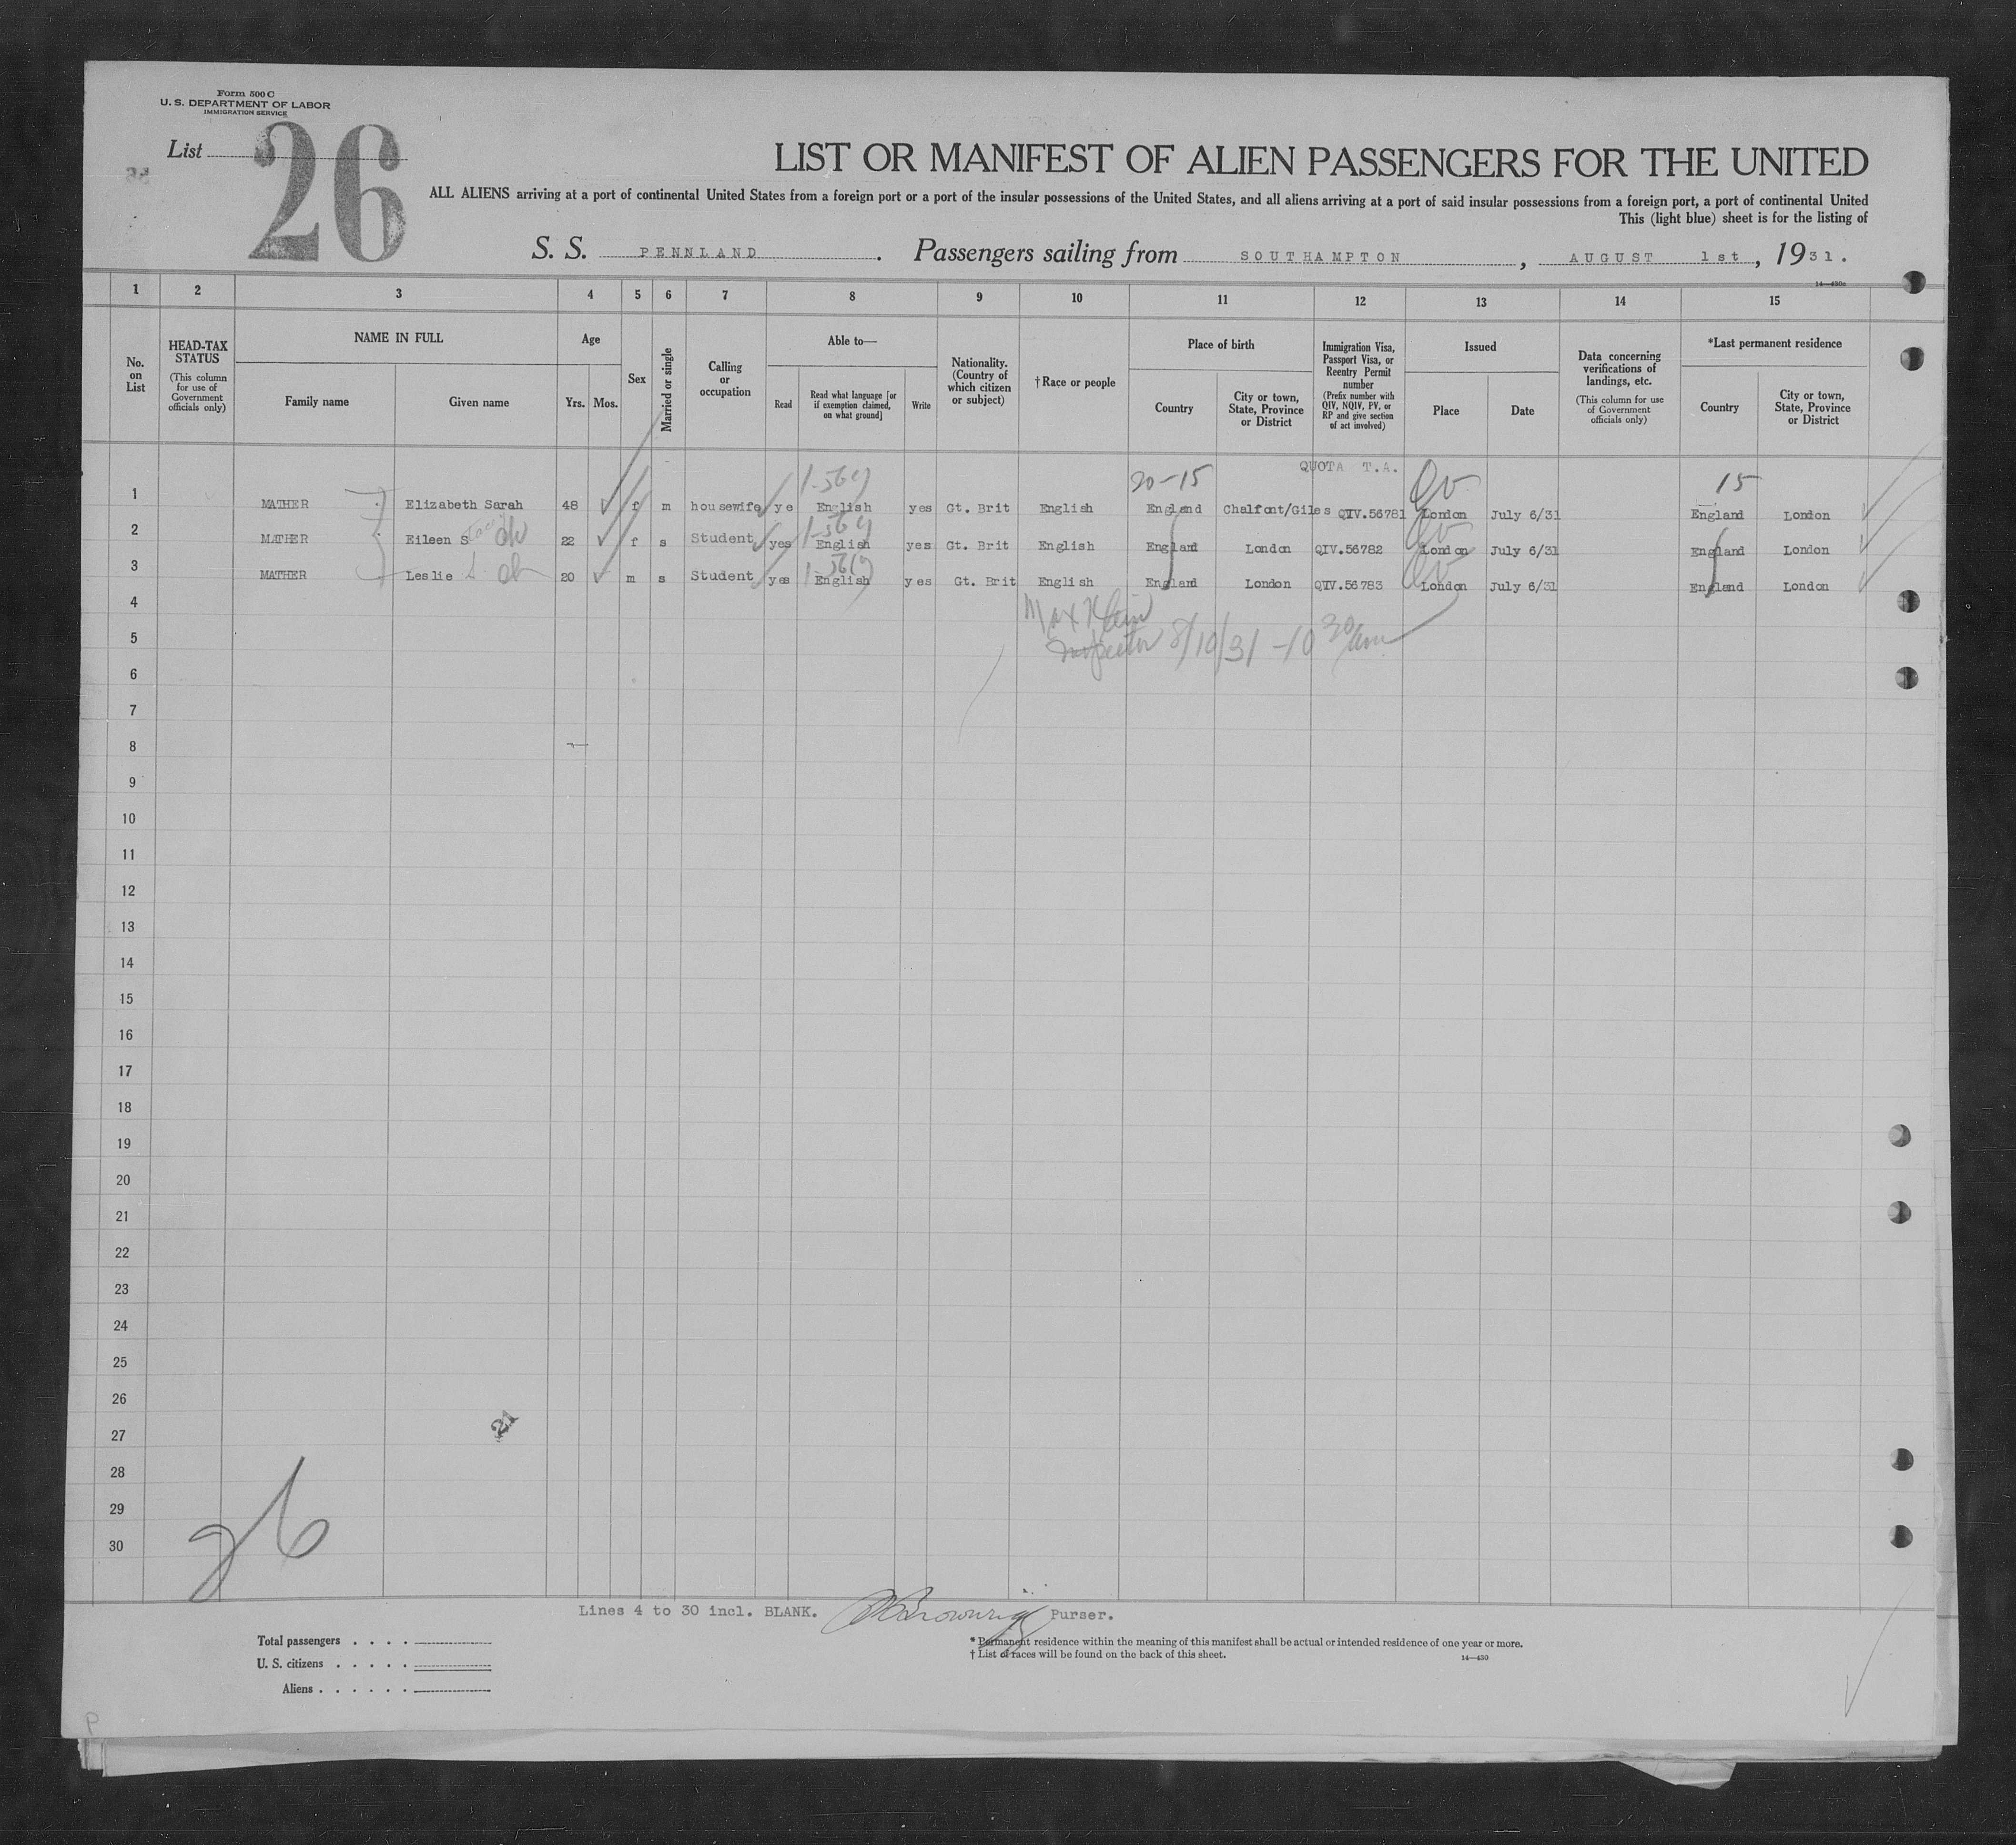 Form 500 C
U. S. DEPARTMENT OF LABOR
IMMIGRATION SERVICE
List 26
LIST OR MANIFEST OF ALIEN PASSENGERS FOR THE UNITED
ALL ALIENS arriving at a port of continental United States from a foreign port or a port of the insular possessions of the United States, and all aliens arriving at a port of said insular possessions from a foreign port, a port of continental United
This (light blue) sheet is for the listing of
S. S. PENNLAND . Passengers sailing from SOUTHAMPTON , AUGUST 1st , 1931.
14—430c
1 2 3 4 5 6 7 8 9 10 11 12 13 14 15
No. on List
HEAD-TAX STATUS
(This column for use of Government officials only)
NAME IN FULL
Family name Given name
Age
Yrs. Mos.
Sex
Married or single
Calling or occupation
Able to—
Read
Read what language [or if exemption claimed, on what ground]
Write
Nationality. (Country of which citizen or subject)
†Race or people
Place of birth
Country
City or town, State, Province or District
Immigration Visa, Passport Visa, or Reentry Permit number
(Prefix number with QIV, NQIV, PV, or RP and give section of act involved)
Issued
Place Date
Data concerning verifications of landings, etc.
(This column for use of Government officials only)
*Last permanent residence
Country
City or town, State, Province or District
20-15 QUOTA T.A. 15
1 MATHER Elizabeth Sarah 48 f m housewife ye English yes Gt. Brit English England Chalfont/Giles QIV.56781 London July 6/31 England London
2 MATHER Eileen S 22 f s Student yes English yes Gt. Brit English England London QIV.56782 London July 6/31 England London
3 MATHER Leslie 20 m s Student yes English yes Gt. Brit English England London QIV.56783 London July 6/31 England London
4
Max Klein
5
Inspector 8/10/31 - 10 30 am
6
7
8
9
10
11
12
13
14
15
16
17
18
19
20
21
22
23
24
25
26
27
21
28
29
30
26
Lines 4 to 30 incl. BLANK. Purser.
Total passengers . . . .
U. S. citizens . . . . .
Aliens . . . . . .
* Permanent residence within the meaning of this manifest shall be actual or intended residence of one year or more.
† List of races will be found on the back of this sheet.
14—430
P